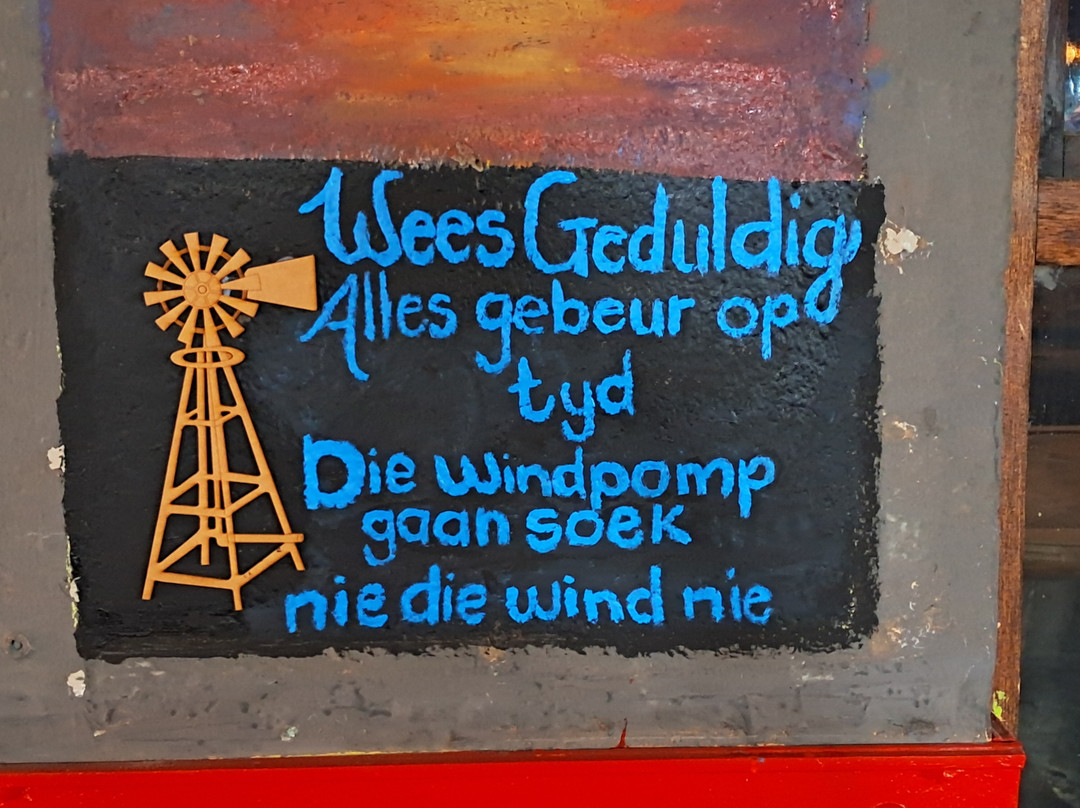 Wees Geduldig
Alles gebeur op
tyd
Die windpomp
gaan soek
nie die wind nie